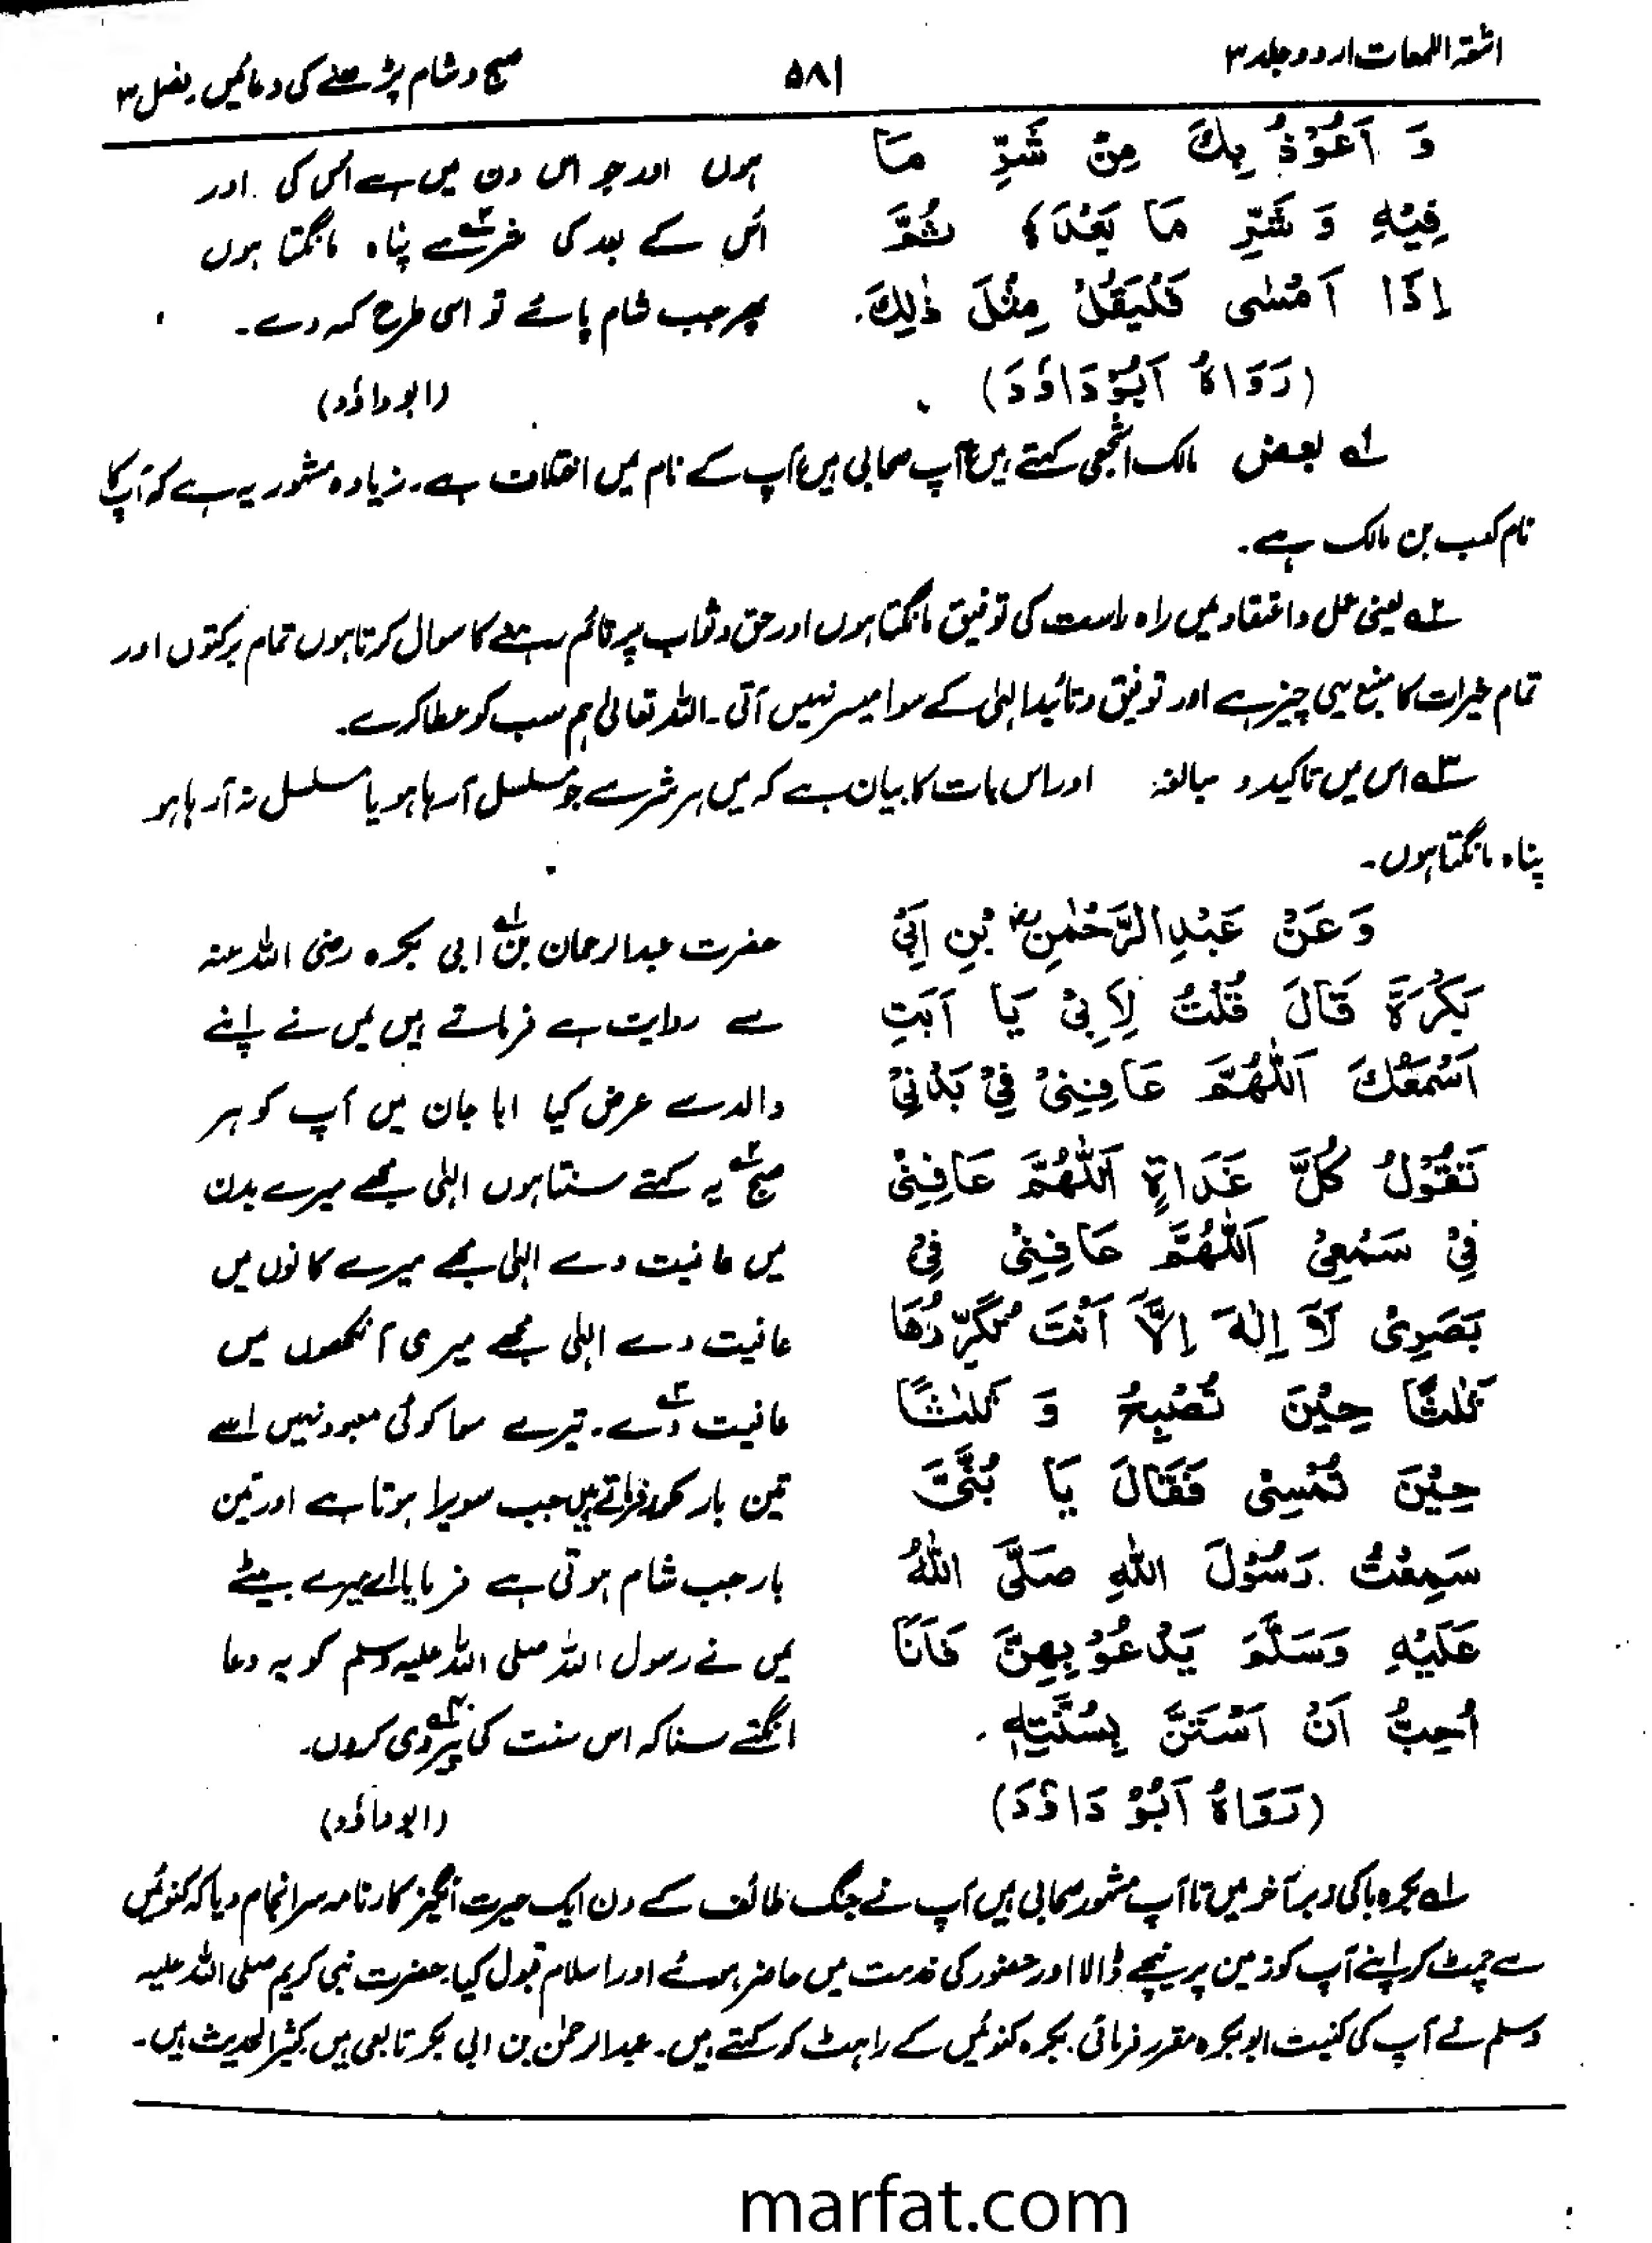 اشعۃ اللمعات اردو جلد ۳
۵۸۱
صبح و شام پڑھنے کی دعائیں، فصل ۳
وَ اَعُوْذُ بِكَ مِنْ شَرِّ مَا
فِيْهِ وَ شَرِّ مَا بَعْدَهٗ ثُمَّ
اِذَا اَمْسٰى فَلْيَقُلْ مِثْلَ ذٰلِكَ.
(رَوَاهُ اَبُوْدَاوٗدَ)
ہوں اور جو اس دن میں ہے اُس کی اور
اُس کے بعد کی شر سے۳ پناہ مانگتا ہوں
پھر جب شام پائے تو اسی طرح کہہ دے۔
(ابوداؤد)
۱ بعض مالک اشجعی کہتے ہیں آپ صحابی ہیں آپ کے نام میں اختلاف ہے۔ زیادہ مشہور یہ ہے کہ آپ کا
نام کعب بن مالک ہے۔
۲ یعنی عمل و اعتقاد میں راہ راست کی توفیق مانگتا ہوں اور حق و ثواب پر قائم رہنے کا سوال کرتا ہوں تمام برکتوں اور
تمام خیرات کا منبع یہی چیز ہے اور توفیق و تائید الہٰی کے سوا میسر نہیں آتی۔ اللہ تعالیٰ ہم سب کو عطا کرے۔
۳ اس میں تاکید و مبالغہ اور اس بات کا بیان ہے کہ میں ہر شر سے جو مسلسل آ رہا ہو یا مسلسل نہ آ رہا ہو
پناہ مانگتا ہوں۔
وَعَنْ عَبْدِالرَّحْمٰنِ بْنِ اَبِيْ
بَكْرَةَ قَالَ قُلْتُ لِاَبِيْ يَا اَبَتِ
اَسْمَعُكَ اَللّٰهُمَّ عَافِنِيْ فِيْ بَدَنِيْ
تَقُوْلُ كُلَّ غَدَاةٍ اَللّٰهُمَّ عَافِنِيْ
فِيْ سَمْعِيْ اَللّٰهُمَّ عَافِنِيْ فِيْ
بَصَرِيْ لَا اِلٰهَ اِلَّا اَنْتَ تُكَرِّرُهَا
ثَلٰثًا حِيْنَ تُصْبِحُ وَ ثَلٰثًا
حِيْنَ تُمْسِيْ فَقَالَ يَا بُنَيَّ
سَمِعْتُ رَسُوْلَ اللهِ صَلَّى اللهُ
عَلَيْهِ وَسَلَّمَ يَدْعُوْ بِهِنَّ فَاَنَا
اُحِبُّ اَنْ اَسْتَنَّ بِسُنَّتِهٖ.
(رَوَاهُ اَبُوْ دَاوٗدَ)
حضرت عبدالرحمان بن۱ ابی بکرہ رضی اللہ عنہ
سے روایت ہے فرماتے ہیں میں نے اپنے
والد سے عرض کیا ابا جان میں آپ کو ہر
صبح۲ یہ کہتے سنتا ہوں الہٰی مجھے میرے بدن
میں عافیت دے الہٰی مجھے میرے کانوں میں
عافیت دے الہٰی مجھے میری آنکھوں میں
عافیت دے۳۔ تیرے سوا کوئی معبود نہیں اسے
تین بار مکرر فرماتے ہیں جب سویرا ہوتا ہے اور تین
بار جب شام ہوتی ہے فرمایا اے میرے بیٹے
میں نے رسول اللہ صلی اللہ علیہ وسلم کو یہ دعا
مانگتے سنا کہ اس سنت کی پیروی۴ کروں۔
(ابوداؤد)
۱ بکرہ با کی زبر آخر میں تا آپ مشہور صحابی ہیں آپ نے جنگ طائف کے دن ایک حیرت انگیز کارنامہ سرانجام دیا کہ کنوئیں
سے چمٹ کر اپنے آپ کو زمین پر نیچے ڈالا اور حضور کی خدمت میں حاضر ہوئے اور اسلام قبول کیا۔ حضرت نبی کریم صلی اللہ علیہ
وسلم نے آپ کی کنیت ابوبکرہ مقرر فرمائی۔ بکرہ کنوئیں کے راہٹ کو کہتے ہیں۔ عبدالرحمٰن بن ابی بکر تابعی ہیں کثیر الحدیث ہیں۔
marfat.com